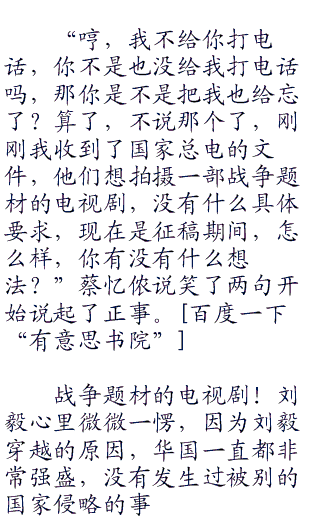 “哼，我不给你打电
话，你不是也没给我打电话
吗，那你是不是把我也给忘
了？算了，不说那个了，刚
刚我收到了国家总电的文
件，他们想拍摄一部战争题
材的电视剧，没有什么具体
要求，现在是征稿期间，怎
么样，你有没有什么想
法？”蔡忆侬说笑了两句开
始说起了正事。[百度一下
“有意思书院”]
战争题材的电视剧！刘
毅心里微微一愣，因为刘毅
穿越的原因，华国一直都非
常强盛，没有发生过被别的
国家侵略的事